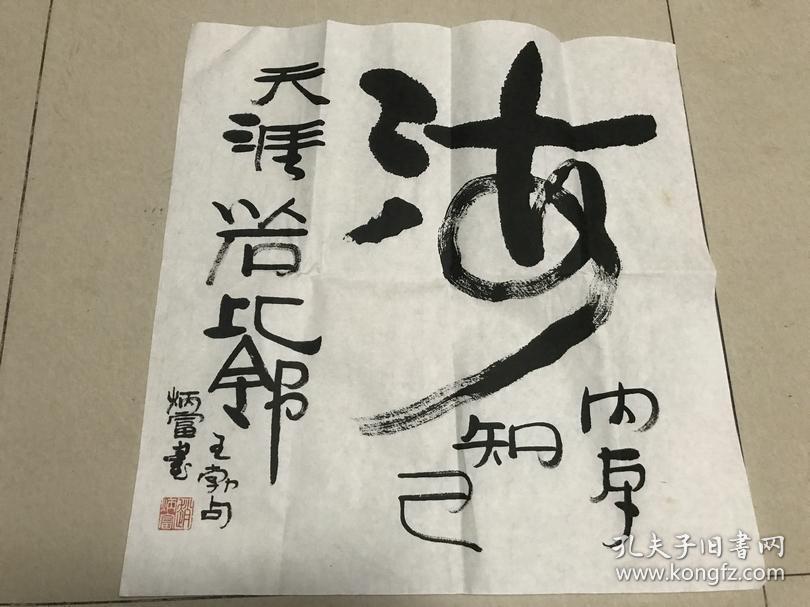 海
内存
知
己
天涯若比邻
王勃句
炳富書
孔夫子旧書网
www.kongfz.com